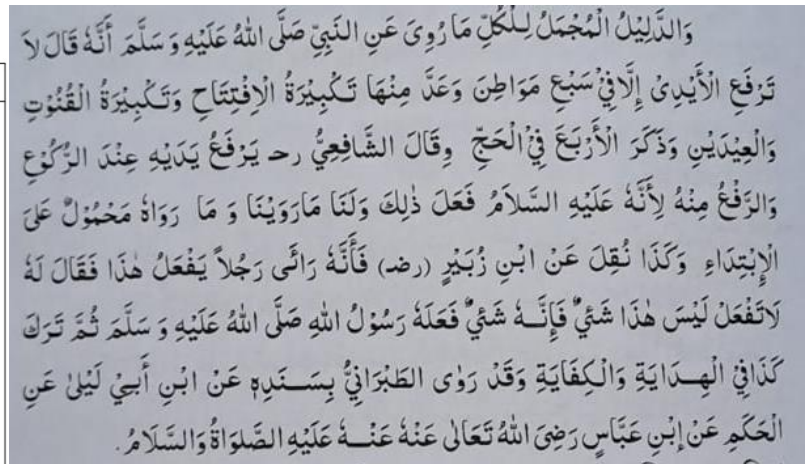 وَالدَّلِيْلُ الْمُجْمَلُ لِلْكُلِّ مَا رُوِىَ عَنِ النَّبِىِّ صَلَّى اللهُ عَلَيْهِ وَ سَلَّمَ أَنَّهُ قَالَ لاَ
تَرْفَعِ الْأَيْدِىْ إِلَّا فِيْ سَبْعِ مَوَاطِنَ وَعَدَّ مِنْهَا تَكْبِيْرَةُ الْاِفْتِتَاحِ وَتَكْبِيْرَةُ الْقُنُوْتِ
وَالْعِيْدَيْنِ وَذَكَرَ الْأَرْبَعَ فِيْ الْحَجِّ وِقَالَ الشَّافِعِيُّ رحـ يَرْفَعُ يَدَيْهِ عِنْدَ الرُّكُوْعِ
وَالرَّفْعُ مِنْهُ لِأَنَّهُ عَلَيْهِ السَّلاَمُ فَعَلَ ذٰلِكَ وَلَنَا مَارَوَيْنَا وَ مَا رَوَاهُ مَحْمُوْلٌ عَلىَ
الْإِبْتِدَاءِ وَكَذَا نُقِلَ عَنْ ابْنِ زُبَيْرٍ (رضـ) فَأَنَّهُ رَائَى رَجُلاً يَفْعَلُ هٰذَا فَقَالَ لَهُ
لَاتَفْعَلْ لَيْسَ هٰذَا شَئْيٌ فَإِنَّـهُ شَئْيٌ فَعَلَهُ رَسُوْلُ اللهِ صَلَّى اللهُ عَلَيْهِ وَ سَلَّمَ ثُمَّ تَرَكَ
كَذَافِيْ الْهِـدَايَةِ وَالْكِفَايَةِ وَقَدْ رَوٰى الطَّبْرَانِيُّ بِسَـنَدِهٖ عَنْ ابْنِ أَبِيْ لَيْلىٰ عَنِ
الْحَكَمِ عَنْ إِبْنِ عَبَّاسٍ رَضِىَ اللهُ تَعَالىٰ عَنْهُ عَنْـهُ عَلَيْهِ الصَّلوَاةُ وَالسَّلَامُ.